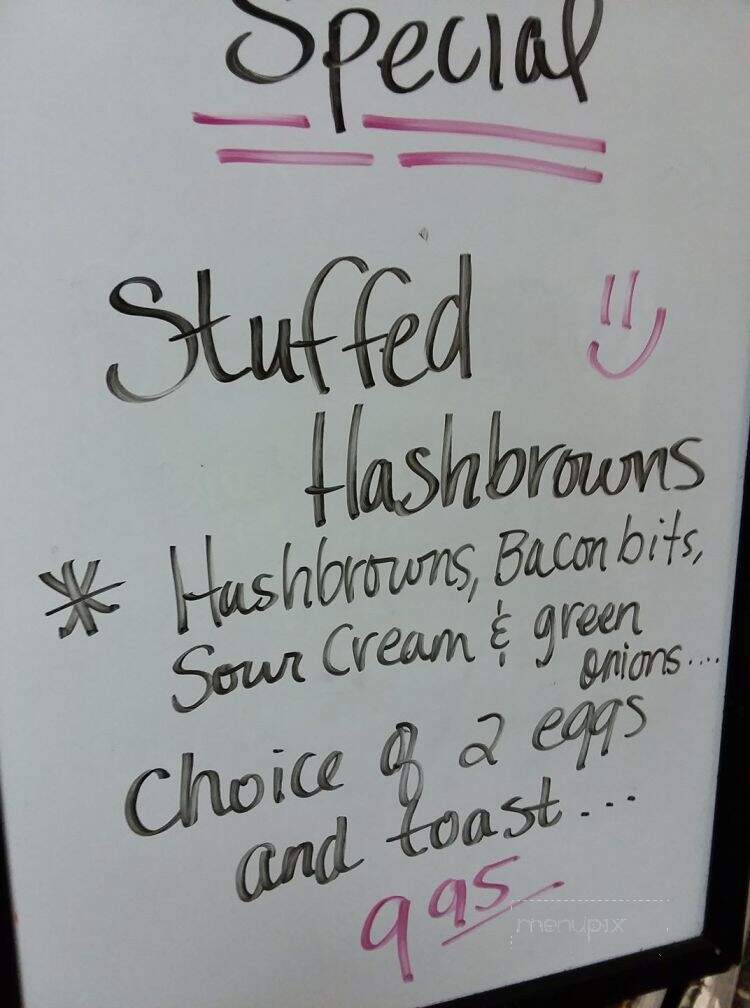 Special
Stuffed
Hashbrowns
* Hashbrowns, Bacon bits,
Sour Cream & green
onions....
Choice of 2 eggs
and toast...
9 95
menupix